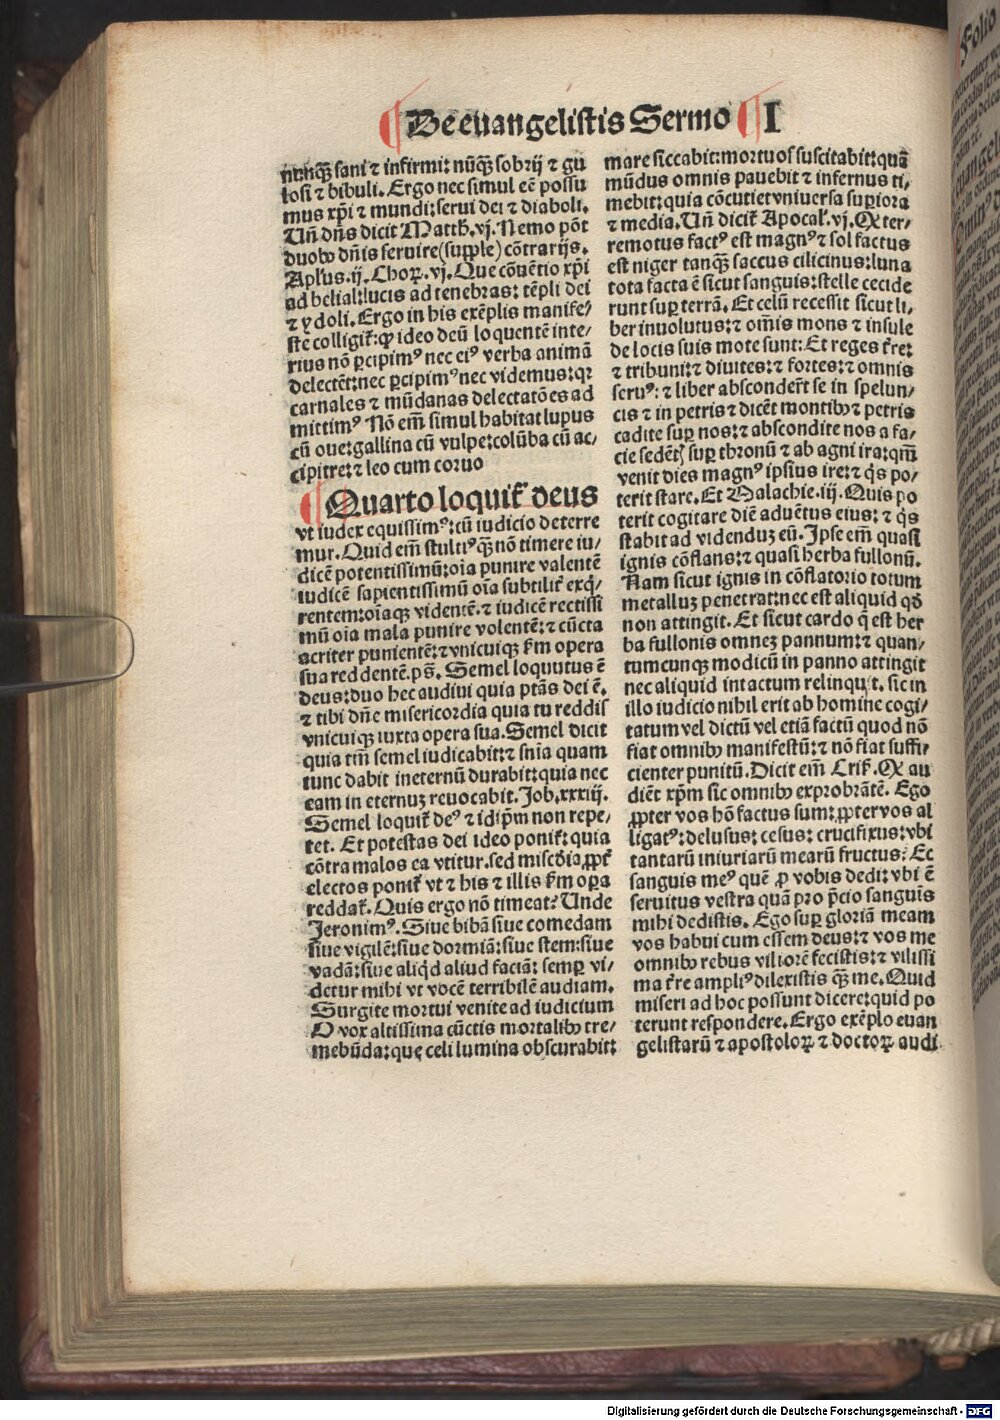 De euangelistis Sermo I
nūnqꝫ sani ⁊ infirmi: nūqꝫ sobrij ⁊ gu
losi ⁊ bibuli. Ergo nec simul eē possu
mus xp̄i ⁊ mundi: serui dei ⁊ diaboli.
Uñ dñs dicit Matth. vj. Nemo pōt
duobꝰ dñis seruire (supple) cōtrarijs.
Apl̓us .ij. Choꝝ. vj. Que cōuētio xp̄i
ad belial: lucis ad tenebras: tēpli dei
⁊ ydoli. Ergo in his exēplis manife/
ste colligit̄: ꝙ ideo deū loquentē inte/
rius nō ꝑcipimꝰ nec eiꝰ verba animā
delectēt: nec ꝑcipimꝰ nec videmus: qꝛ
carnales ⁊ mūdanas delectatōes ad
mittimꝰ Nō em̄ simul habitat lupus
cū oue: gallina cū vulpe: colūba cū ac/
cipitre: ⁊ leo cum coruo
Quarto loquit̄ deus
vt iudex equissimꝰ: cū iudicio deterre
mur. Quid em̄ stultiꝰ qꝫ nō timere iu/
dicē potentissimū: oīa punire valentē
iudicē sapientissimū oīa subtilit̄ exq̇/
rentem: oīaqꝫ videntē. ⁊ iudicē rectissi
mū oīa mala punire volentē: ⁊ cūcta
acriter punientē: ⁊ vnicuiqꝫ ẜm opera
sua reddentē. ps̄. Semel loquutus ē
deus: duo hec audiui quia ptās dei ē.
⁊ tibi dñe misericordia quia tu reddis
vnicuiqꝫ iuxta opera sua. Semel dicit
quia tm̄ semel iudicabit: ⁊ snīa quam
tunc dabit ineternū durabit: quia nec
eam in eternuꝫ reuocabit. Job. xxxiij.
Semel loquit̄ deꝰ ⁊ idip̄m non repe/
tet. Et potestas dei ideo ponit̄: quia
cōtra malos ea vtitur. sed mīscōia ꝓpt̄
electos ponit̄ vt ⁊ his ⁊ illis ẜm oꝑa
reddat̄. Quis ergo nō timeat? Unde
Jeronimꝰ. Siue bibā siue comedam
siue vigilē: siue dormiā: siue stem: siue
vadā: siue aliq̇d aliud faciā: semꝑ vi/
detur mihi vt vocē terribilē audiam.
Surgite mortui venite ad iudicium
O vox altissima cūctis mortalibꝰ tre/
mebūda: quę celi lumina obscurabit:
mare siccabit: mortuos suscitabit: quā
mūdus omnis pauebit ⁊ infernus ti/
mebit: quia cōcutiet vniuersa suꝑiora
⁊ media. Uñ dicit̄ Apocal̓. vj. Et ter/
remotus factꝰ est magnꝰ ⁊ sol factus
est niger tanqꝫ saccus cilicinus: luna
tota facta ē sicut sanguis: stelle cecide
runt suꝑ terrā. Et celū recessit sicut li/
ber inuolutus: ⁊ om̄is mons ⁊ insule
de locis suis mote sunt: Et reges t̄re:
⁊ tribuni: ⁊ diuites: ⁊ fortes: ⁊ omnis
seruꝰ: ⁊ liber absconder̄t se in spelun/
cis ⁊ in petris ⁊ dicēt montibꝰ ⁊ petris
cadite suꝑ nos: ⁊ abscondite nos a fa/
cie sedētꝭ suꝑ thronū ⁊ ab agni ira: qm̄
venit dies magnꝰ ipsius ire: ⁊ q̇s po/
terit stare. Et Malachie. iij. Quis po
terit cogitare diē aduētus eius: ⁊ q̇s
stabit ad videnduꝫ eū. Ipse em̄ quasi
ignis cōflans: ⁊ quasi herba fullonū.
Nam sicut ignis in cōflatorio totum
metalluꝫ penetrat: nec est aliquid qd̄
non attingit. Et sicut cardo q̄ est her
ba fullonis omneꝫ pannum: ⁊ quan/
tumcunqꝫ modicū in panno attingit
nec aliquid intactum relinquit. sic in
illo iudicio nihil erit ab homine cogi/
tatum vel dictū vel etiā factū quod nō
fiat omnibꝰ manifestū: ⁊ nō fiat suffi/
cienter punitū. Dicit em̄ Cris̄. Et au
diēt xp̄m sic omnibꝰ exprobrātē. Ego
ꝓpter vos hō factus sum: ꝓpter vos al
ligatꝰ: delusus: cesus: crucifixus: vbi
tantarū iniuriarū mearū fructus: Ec
sanguis meꝰ quē ꝓ vobis dedi: vbi ē
seruitus vestra quā pro p̄cio sanguis
mihi dedistis. Ego suꝑ gloriā meam
vos habui cum essem deus: ⁊ vos me
omnibꝰ rebus viliorē fecistis: ⁊ vilissi
ma t̄re ampliꝰ dilexistis qꝫ me. Quid
miseri ad hoc possunt dicere: quid po
terunt respondere. Ergo exēplo euan
gelistarū ⁊ apostoloꝝ ⁊ doctoꝝ audi
Folio
Digitalisierung gefördert durch die Deutsche Forschungsgemeinschaft - DFG